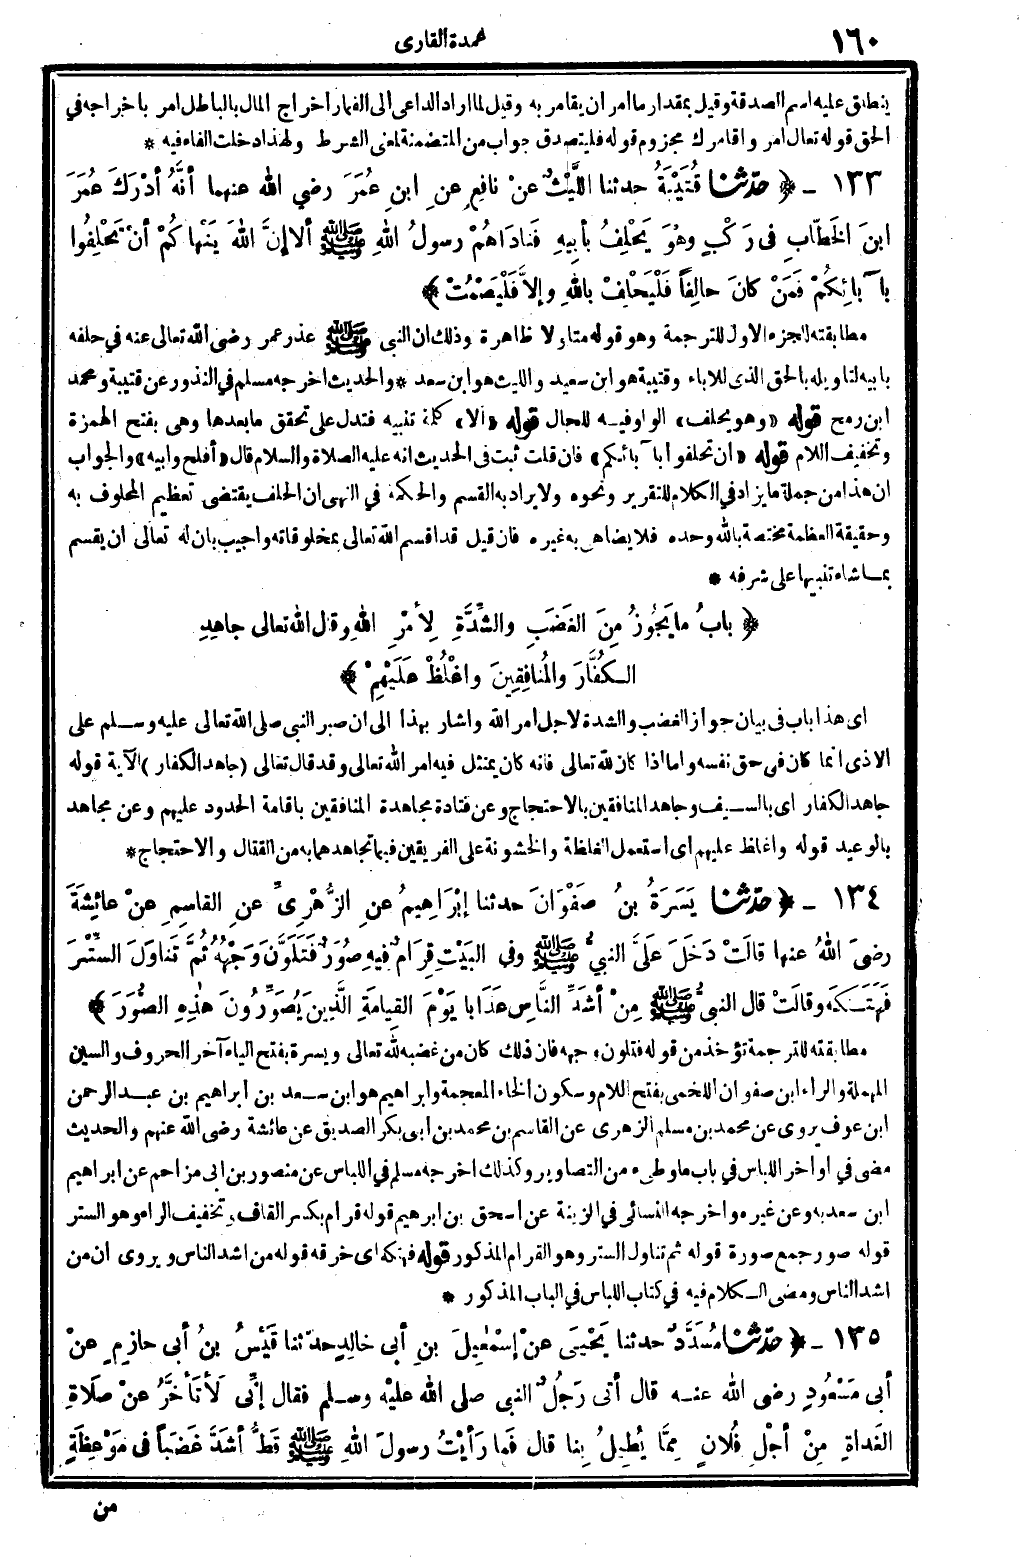 ١٦٠
عمدة القارى
ينطلق عليه اسم الصدقة وقيل بمقدار ما امر ان يقامر به وقيل لما اراد الداعى الى القمار اخراج المال بالباطل امر باخراجه في
الحق قوله تعال امر واقامرك مجزوم قوله فليتصدق جواب من المتضمنة لمعنى الشرط ولهذا دخلت الفاء فيه *
١٣٣ - ﴿ حدّثنا قُتَيْبَةُ حدثنا اللَّيْثُ عنْ نافِعٍ عنِ ابنِ عُمَرَ رضي الله عنهما أنَّهُ أدْرَكَ عُمَرَ
ابنَ الخَطّابِ فى رَكْبٍ وهُوَ يَحْلِفُ بأبيهِ فَنادَاهُمْ رسولُ اللهِ ﷺ ألا إنَّ اللهَ يَنْهاكُمْ أنْ تَحْلِفُوا
بآبائِكُمْ فَمَنْ كانَ حالِفاً فَلْيَحْلِفْ باللهِ وإلاَّ فَلْيَصْمُتْ ﴾
مطابقته للجزء الاول للترجمة وهو قوله متاولا ظاهرة وذلك ان النبى ﷺ عذر عمر رضى الله تعالى عنه في حلفه
بابيه لتاويله بالحق الذى للاباء وقتيبة هو ابن سعيد والليث هو ابن سعد * والحديث اخرجه مسلم في النذور عن قتيبة ومحمد
ابن رمح قوله «وهو يحلف» الواو فيه للحال قوله «ألا» كلمة تنبيه فتدل على تحقق ما بعدها وهى بفتح الهمزة
وتخفيف اللام قوله «ان تحلفوا بآبائكم» فان قلت ثبت فى الحديث انه عليه الصلاة والسلام قال «أفلح وابيه» والجواب
ان هذا من جملة ما يزاد في الكلام للتقرير ونحوه ولا يراد به القسم والحكمة في النهى ان الحلف يقتضى تعظيم المحلوف به
وحقيقة العظمة مختصة بالله وحده فلا يضاهى به غيره فان قيل قد اقسم الله تعالى بمخلوقاته واجيب بان له تعالى ان يقسم
بما شاء تنبيها على شرفه *
﴿ بابُ ما يَجُوزُ مِنَ الغَضَبِ والشِّدَّةِ لِأَمْرِ اللهِ وقال الله تعالى جاهِدِ
الكُفَّارَ والمُنافِقِينَ واغْلُظْ عَلَيْهِمْ ﴾
اى هذا باب فى بيان جواز الغضب والشدة لاجل امر الله واشار بهذا الى ان صبر النبى صلى الله تعالى عليه وسلم على
الاذى انما كان فى حق نفسه واما اذا كان لله تعالى فانه كان يمتثل فيه امر الله تعالى وقد قال تعالى (جاهد الكفار) الآية قوله
جاهد الكفار اى بالسيف وجاهد المنافقين بالاحتجاج وعن قتادة مجاهدة المنافقين باقامة الحدود عليهم وعن مجاهد
بالوعيد قوله واغلظ عليهم اى استعمل الغلظة والخشونة على الفريقين فيما تجاهدهما به من القتال والاحتجاج *
١٣٤ - ﴿ حدّثنا يَسَرَةُ بنُ صَفْوَانَ حدثنا إبْرَاهِيمُ عنِ الزُّهْرِىِّ عنِ القاسِمِ عنْ عائِشَةَ
رضىَ اللهُ عنها قالَتْ دَخَلَ عَلَىَّ النبىُّ ﷺ وفي البَيْتِ قِرَامٌ فِيهِ صُوَرٌ فَتَلَوَّنَ وَجْهُهُ ثُمَّ تَناوَلَ السِّتْرَ
فَهَتَكَهُ وقالَتْ قال النبىُّ ﷺ مِنْ أشَدِّ النَّاسِ عَذَابا يَوْمَ القِيامَةِ الَّذِينَ يُصَوِّرُونَ هٰذِهِ الصُّوَرَ ﴾
مطابقته للترجمة تؤخذ من قوله فتلون وجهه فان ذلك كان من غضبه لله تعالى ويسرة بفتح الياء آخر الحروف والسين
المهملة والراء ابن صفوان اللخمى بفتح اللام وسكون الخاء المعجمة وابراهيم هو ابن سعد بن ابراهيم بن عبد الرحمن
ابن عوف يروى عن محمد بن مسلم الزهرى عن القاسم بن محمد بن ابى بكر الصديق عن عائشة رضى الله عنهم والحديث
مضى في اواخر اللباس في باب ما وطىء من التصاوير وكذلك اخرجه مسلم في اللباس عن منصور بن ابى مزاحم عن ابراهيم
ابن سعد به وعن غيره واخرجه النسائى في الزينة عن اسحق بن ابرهيم قوله قرام بكسر القاف وتخفيف الراء وهو الستر
قوله صور جمع صورة قوله ثم تناول الستر وهو القرام المذكور قوله فهتكه اى خرقه قوله من اشد الناس ويروى ان من
اشد الناس ومضى الكلام فيه في كتاب اللباس في الباب المذكور *
١٣٥ - ﴿ حدّثنا مُسَدَّدٌ حدثنا يَحْيَى عنْ إسْمٰعِيلَ بنِ أبي خالِدٍ حدّثنا قَيْسُ بنُ أبى حازِمٍ عنْ
أبى مَسْعُودٍ رضى الله عنه قال أتى رَجُلٌ النبى صلى الله عليه وسلم فقال إنِّى لَأتَأخَّرُ عنْ صَلاةِ
الغَداةِ مِنْ أجْلِ فُلانٍ مِمَّا يُطِيلُ بِنا قال فَما رَأيْتُ رسولَ اللهِ ﷺ قَطُّ أشَدَّ غَضَباً فى مَوْعِظَةٍ
من